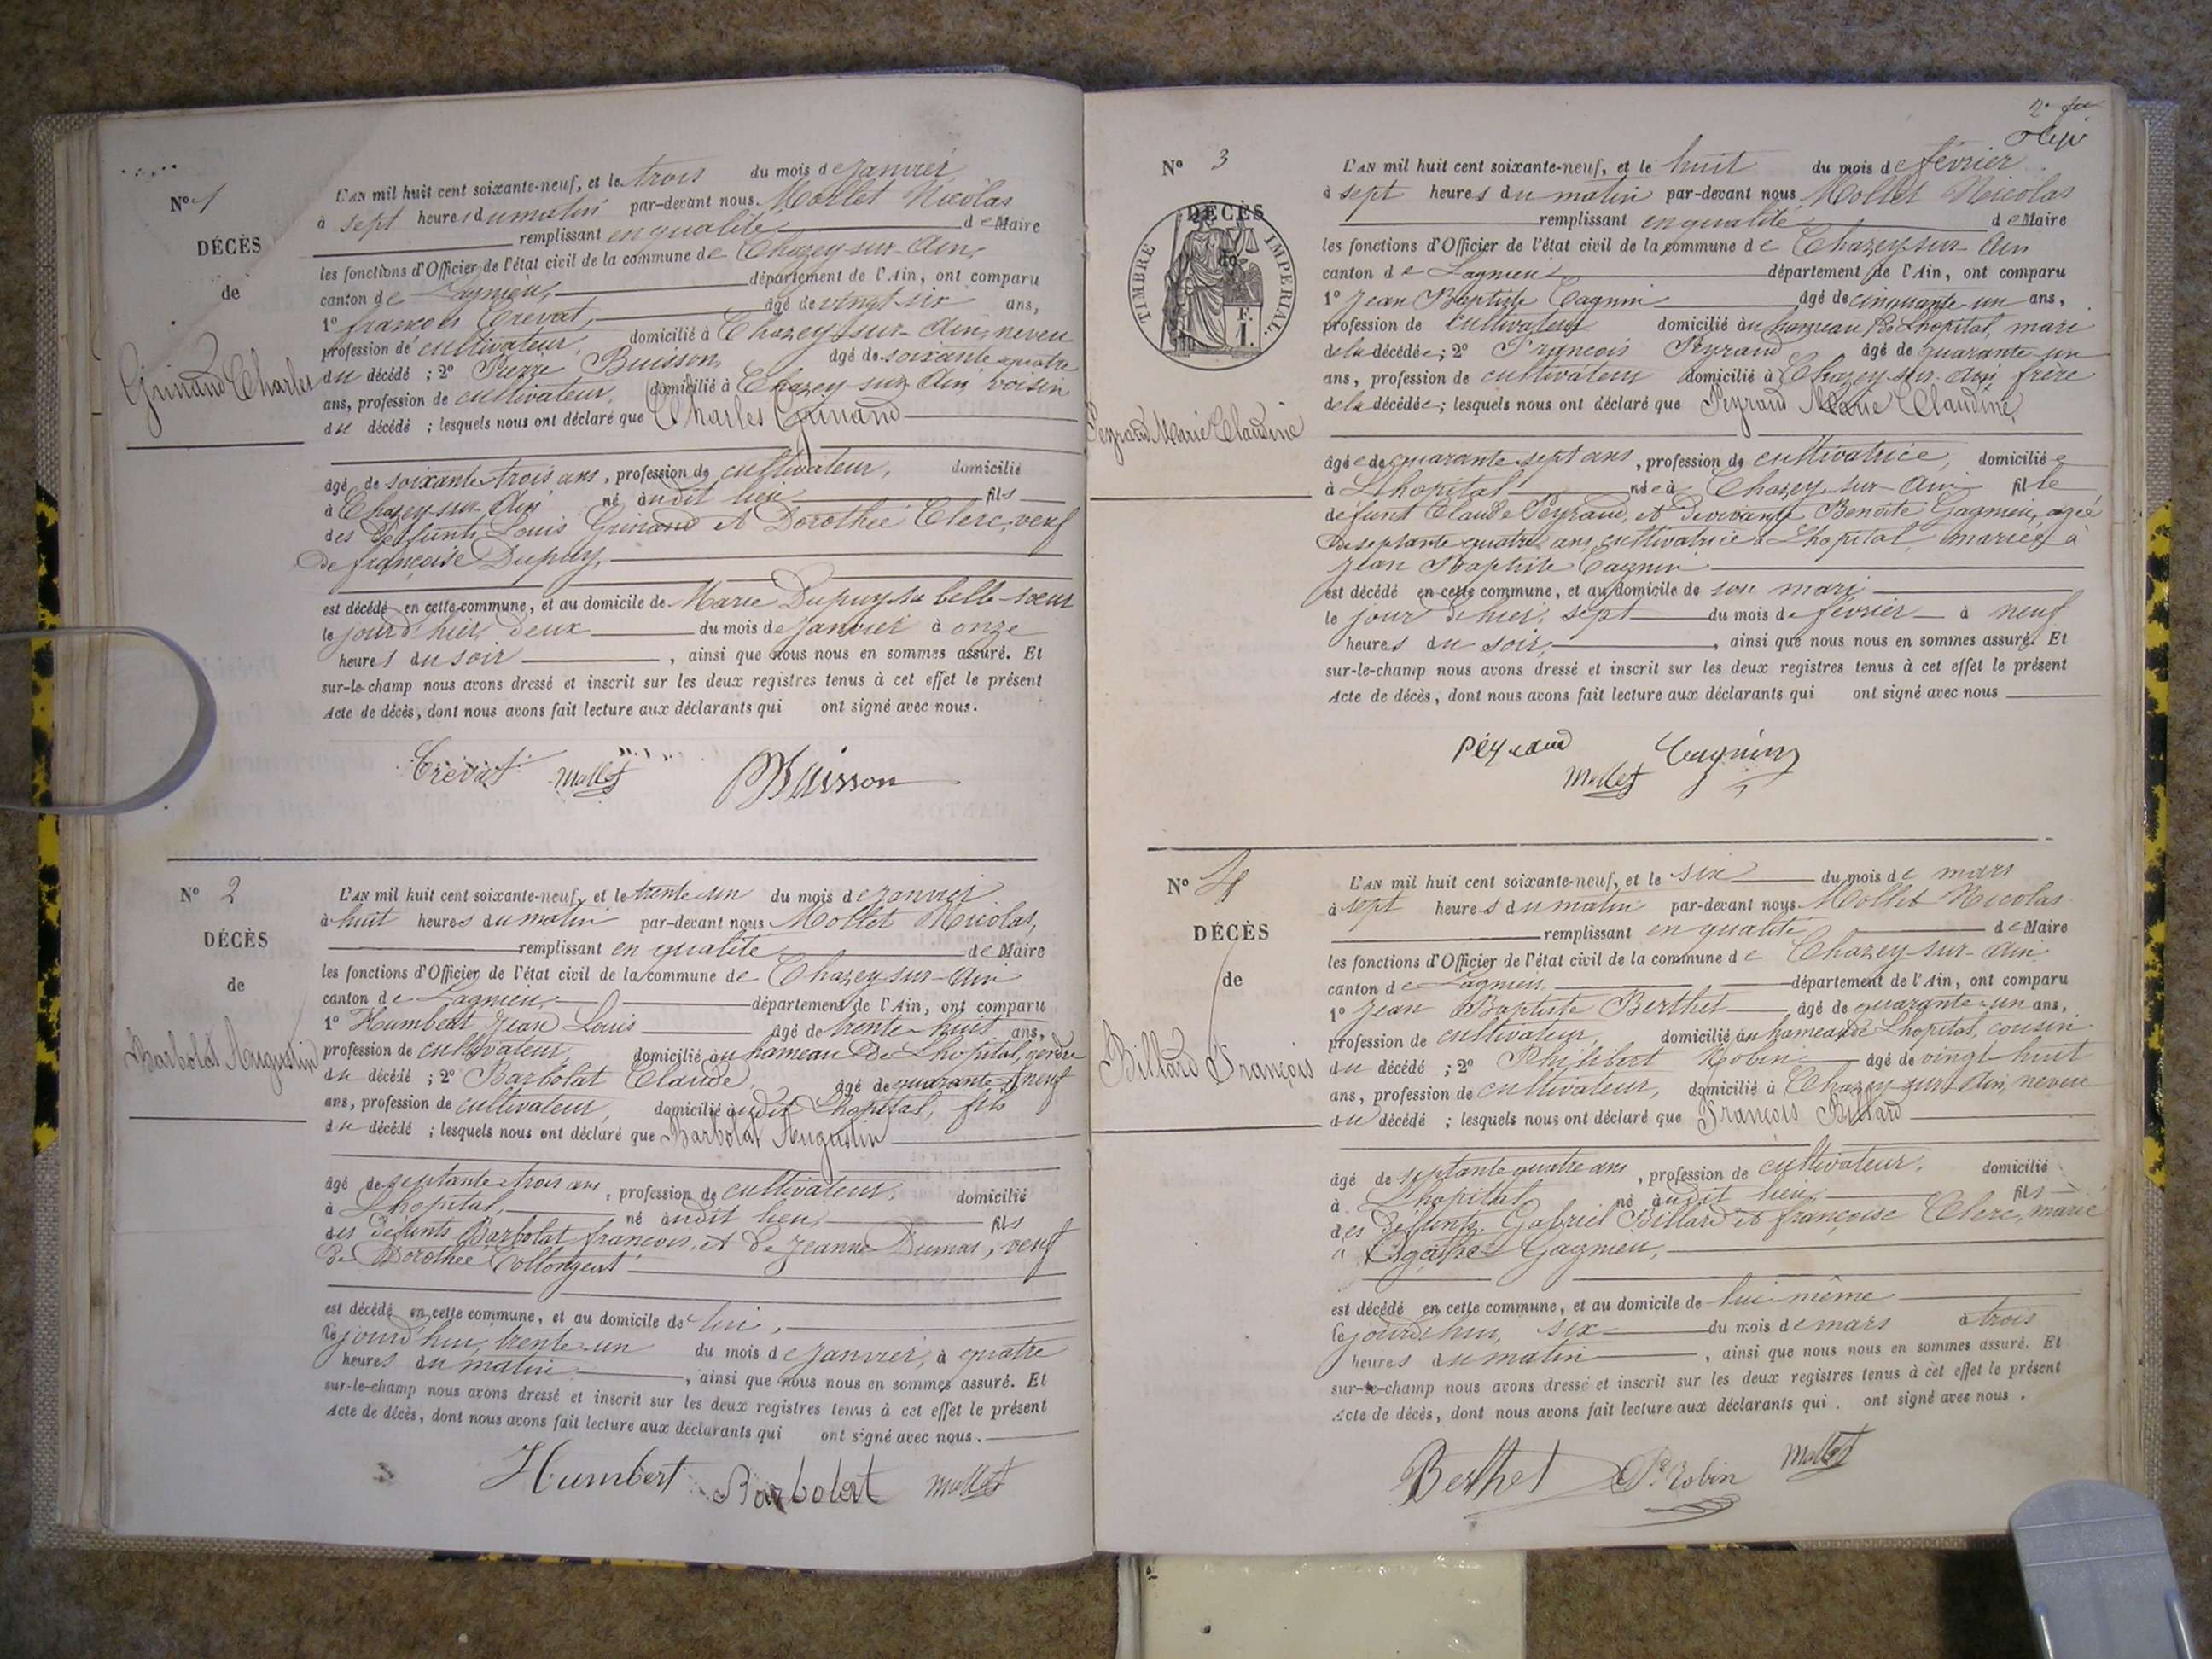 N° 1
DÉCÈS
de
Grinand Charles
L'AN mil huit cent soixante-neuf, et le trois du mois de janvier
à sept heures du matin par-devant nous Mollet Nicolas
remplissant en qualité de Maire
les fonctions d'Officier de l'état civil de la commune de Chazey-sur-Ain,
canton de Lagnieu, département de l'Ain, ont comparu
1° françois Crevat, âgé de vingt six ans,
profession de cultivateur, domicilié à Chazey-sur-Ain, neveu
du décédé ; 2° Pierre Buisson, âgé de soixante quatre
ans, profession de cultivateur, domicilié à Chazey-sur-Ain, voisin
du décédé ; lesquels nous ont déclaré que Charles Grinand
âgé de soixante-trois ans, profession de cultivateur, domicilié
à Chazey-sur-Ain né audit lieu fils
des défunts Louis Grinand et Dorothée Clerc, veuf
de françoise Dupuy,
est décédé en cette commune, et au domicile de Marie Dupuy sa belle-sœur
le jour d'hier, deux du mois de janvier à onze
heures du soir, ainsi que nous nous en sommes assuré. Et
sur-le-champ nous avons dressé et inscrit sur les deux registres tenus à cet effet le présent
Acte de décès, dont nous avons fait lecture aux déclarants qui ont signé avec nous.
Crevat Mollet Buisson
N° 2
DÉCÈS
de
Barbolat Augustin
L'AN mil huit cent soixante-neuf, et le trente-un du mois de janvier
à huit heures du matin par-devant nous Mollet Nicolas,
remplissant en qualité de Maire
les fonctions d'Officier de l'état civil de la commune de Chazey-sur-Ain
canton de Lagnieu, département de l'Ain, ont comparu
1° Humbert Jean Louis âgé de trente-huit ans,
profession de cultivateur, domicilié au hameau de Lhopital, gendre
du décédé ; 2° Barbolat Claude, âgé de quarante neuf
ans, profession de cultivateur, domicilié audit Lhopital, fils
du décédé ; lesquels nous ont déclaré que Barbolat Augustin
âgé de septante-trois ans, profession de cultivateur, domicilié
à Lhopital, né audit lieu, fils
des défunts Barbolat françois, et de Jeanne Dumas, veuf
de Dorothée Collongeat
est décédé en cette commune, et au domicile de lui,
le jourd'hui, trente-un du mois de janvier, à quatre
heures du matin, ainsi que nous nous en sommes assuré. Et
sur-le-champ nous avons dressé et inscrit sur les deux registres tenus à cet effet le présent
Acte de décès, dont nous avons fait lecture aux déclarants qui ont signé avec nous.
Humbert Barbolat Mollet
N° 3
DÉCÈS
de
TIMBRE IMPERIAL.
F.
1.
Peyraud Marie Claudine
L'AN mil huit cent soixante-neuf, et le huit du mois de février
à sept heures du matin par-devant nous Mollet Nicolas
remplissant en qualité de Maire
les fonctions d'Officier de l'état civil de la commune de Chazey-sur-Ain
canton de Lagnieu département de l'Ain, ont comparu
1° Jean Baptiste Cagnin âgé de cinquante-un ans,
profession de cultivateur domicilié au hameau de Lhopital, mari
de la décédée ; 2° François Peyraud âgé de quarante-un
ans, profession de cultivateur domicilié à Chazey-sur-Ain, frère
de la décédée ; lesquels nous ont déclaré que Peyraud Marie Claudine,
âgée de quarante-sept ans, profession de cultivatrice, domiciliée
à Lhopital née à Chazey-sur-Ain fille
de funt Claude Peyraud, et de vivante Benoite Gagnieu, agée
de septante quatre ans, cultivatrice à Lhopital, mariée à
Jean Baptiste Cagnin
est décédé en cette commune, et au domicile de son mari
le jour d'hier, sept du mois de février à neuf
heures du soir, ainsi que nous nous en sommes assuré. Et
sur-le-champ nous avons dressé et inscrit sur les deux registres tenus à cet effet le présent
Acte de décès, dont nous avons fait lecture aux déclarants qui ont signé avec nous
Péyraud Cagnin
Mollet
N° 4
DÉCÈS
de
Billard François
L'AN mil huit cent soixante-neuf, et le six du mois de mars
à sept heures du matin par-devant nous Mollet Nicolas
remplissant en qualité de Maire
les fonctions d'Officier de l'état civil de la commune de Chazey-sur-Ain
canton de Lagnieu, département de l'Ain, ont comparu
1° Jean Baptiste Berthet âgé de quarante-un ans,
profession de cultivateur, domicilié au hameau de Lhopital, cousin
du décédé ; 2° Philibert Robin âgé de vingt-huit
ans, profession de cultivateur, domicilié à Chazey-sur-Ain, neveu
du décédé ; lesquels nous ont déclaré que François Billard
âgé de septante quatre ans, profession de cultivateur, domicilié
à Lhopital, né audit lieu, fils
des défunts Gabriel Billard et françoise Clerc, marié
à Agathe Gagnieu,
est décédé en cette commune, et au domicile de lui même
le jourd'hui, six du mois de mars à trois
heures du matin, ainsi que nous nous en sommes assuré. Et
sur-le-champ nous avons dressé et inscrit sur les deux registres tenus à cet effet le présent
Acte de décès, dont nous avons fait lecture aux déclarants qui ont signé avec nous.
Berthet Ph Robin Mollet